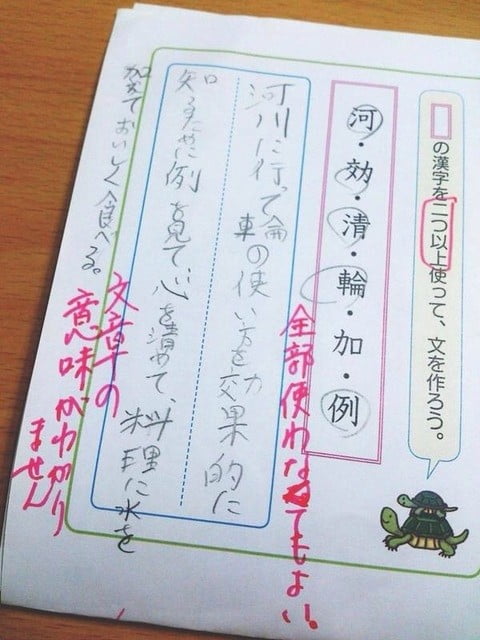 の漢字を二つ以上使って、文を作ろう。
河・効・清・輪・加・例
全部使わなくてもよい。
河川に行って輪
車の使い方を効果的に
知るために例を見て、心を清めて、料理に水を
加えておいしく食べる。
文章の
意味がわかり
ません